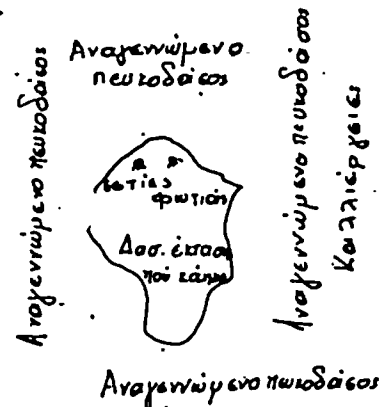 Ἀναγεννώμενο
πευκοδάσος
Ἀναγεννώμενο πευκοδάσος
ἑστίες
φωτιάς
Δασ. ἔκταση
πού κάηκε
Ἀναγεννώμενο πευκοδάσος
Καλλιέργειες
Ἀναγεννώμενο πευκοδάσος